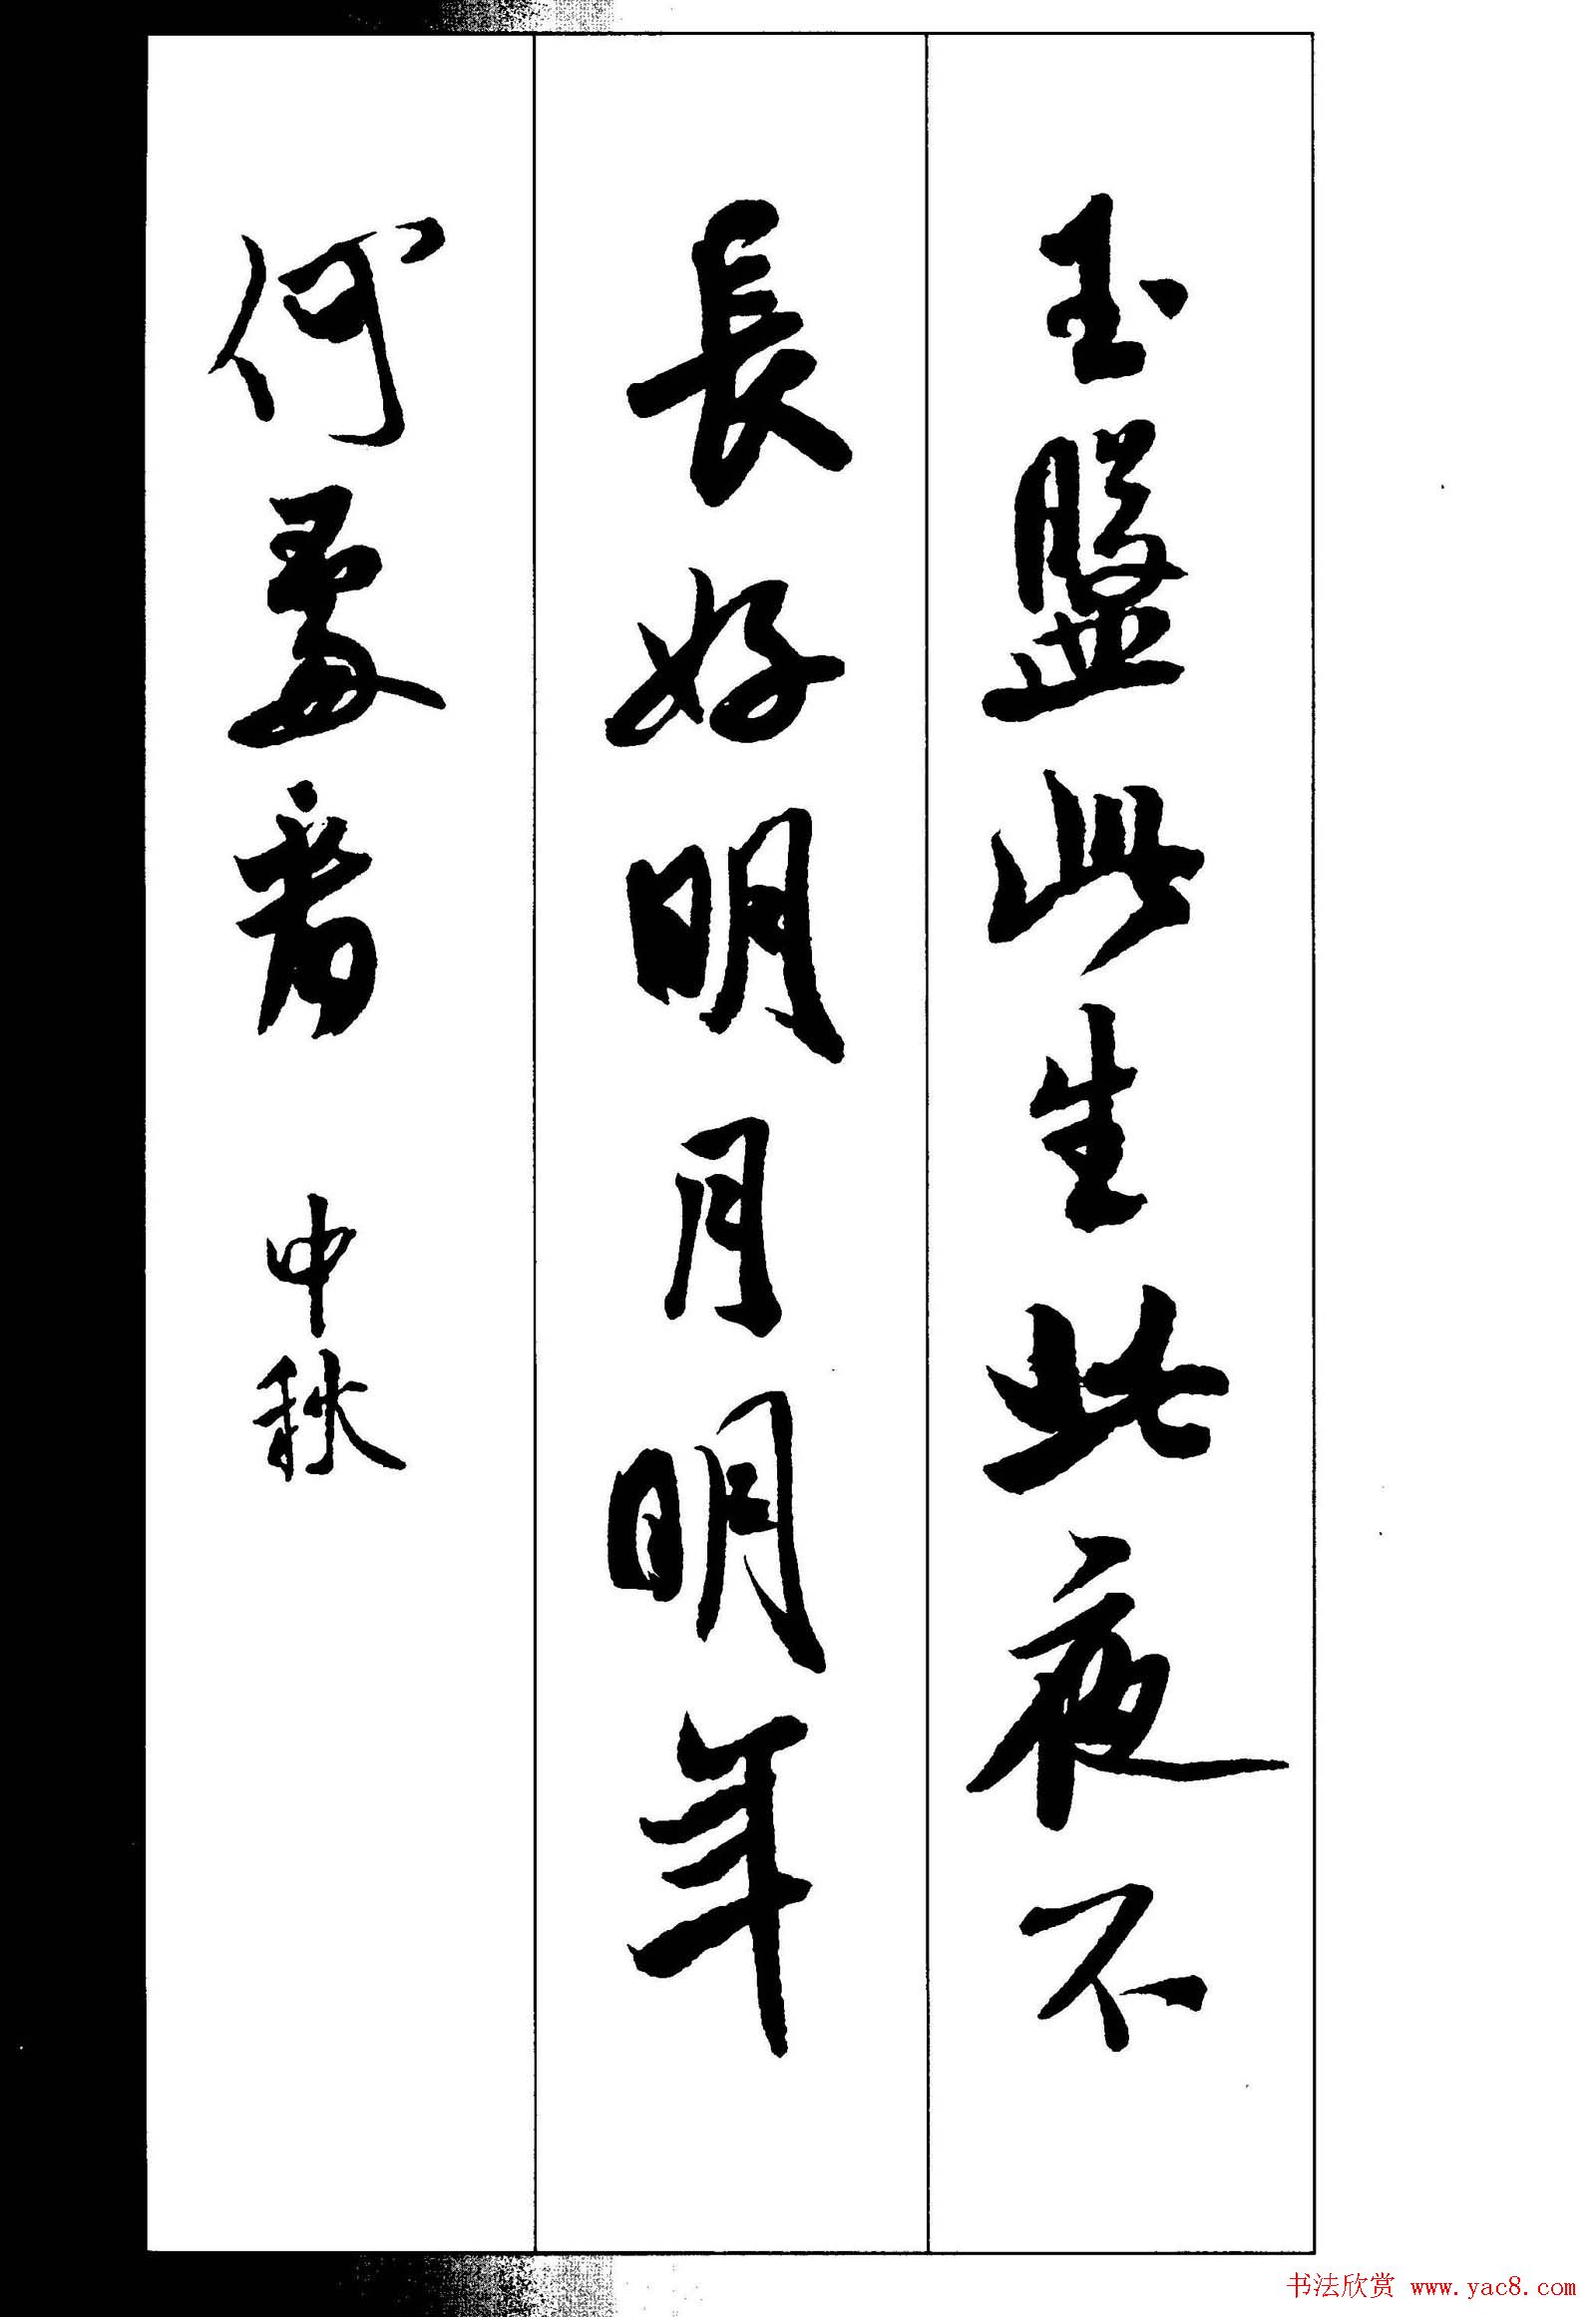 玉盤此生此夜不
長好明月明年
何處看 中秋
书法欣赏 www.yac8.com